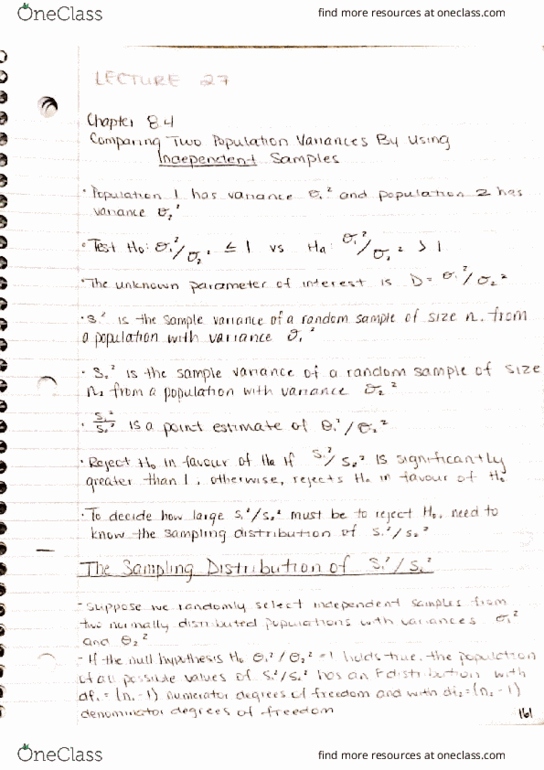 OneClass
find more resources at oneclass.com
LECTURE 27
Chapter 8.4
Comparing Two Population Variances By Using
Independent Samples
· Population 1 has variance σ₁² and population 2 has
variance σ₂²
· Test H₀: σ₁²/σ₂² ≤ 1 vs Ha: σ₁²/σ₂² > 1
· The unknown parameter of interest is D = σ₁²/σ₂²
· S₁² is the sample variance of a random sample of size n₁ from
a population with variance σ₁²
· S₂² is the sample variance of a random sample of size
n₂ from a population with variance σ₂²
· S₁²/S₂² is a point estimate of σ₁²/σ₂²
· Reject H₀ in favour of Ha if S₁²/S₂² is significantly
greater than 1, otherwise, rejects Ha in favour of H₀
· To decide how large S₁²/S₂² must be to reject H₀, need to
know the sampling distribution of S₁²/S₂²
The Sampling Distribution of S₁²/S₂²
- Suppose we randomly select independent samples from
two normally distributed populations with variances σ₁²
and σ₂²
- If the null hypothesis H₀ σ₁²/σ₂² = 1 holds true, the population
of all possible values of S₁²/S₂² has an F distribution with
df₁ = (n₁ - 1) numerator degrees of freedom and with df₂ = (n₂ - 1)
denominator degrees of freedom
161
OneClass
find more resources at oneclass.com